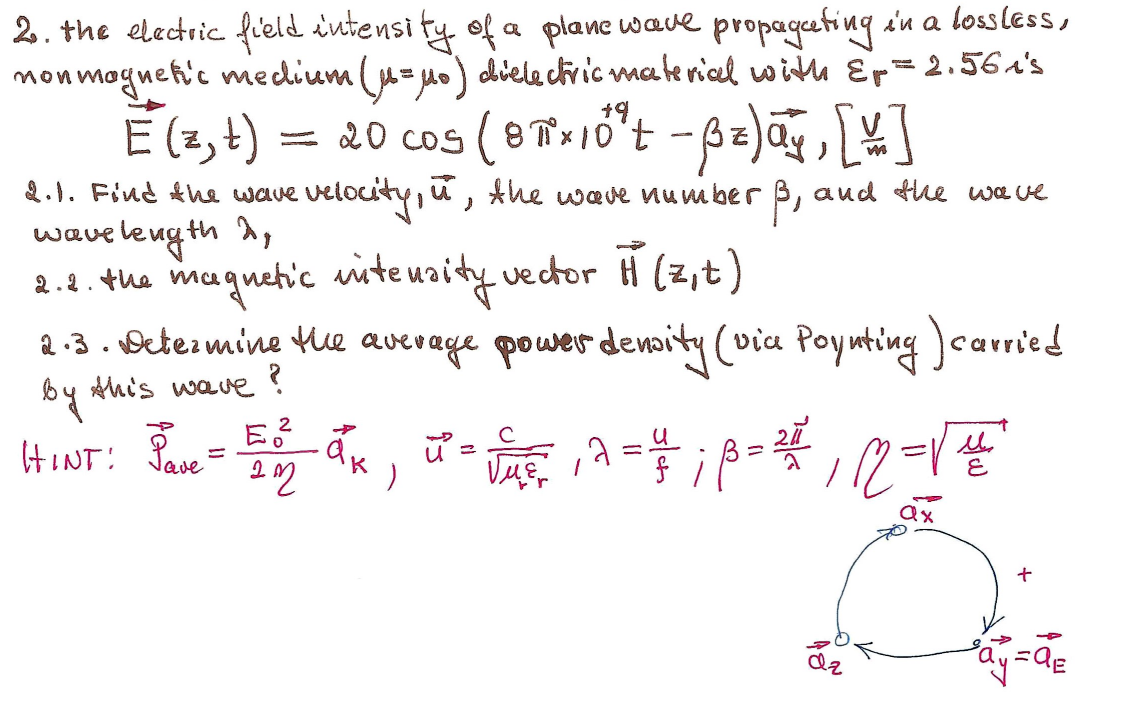 2. the electric field intensity of a plane wave propagating in a lossless,
nonmagnetic medium (μ=μ₀) dielectric material with εr = 2.56 is
E⃗ (z,t) = 20 cos (8π×10⁺⁹t − βz) a⃗y, [V/m]
2.1. Find the wave velocity, u⃗, the wave number β, and the wave
wavelength λ,
2.2. the magnetic intensity vector H⃗ (z,t)
2.3. Determine the average power density (via Poynting) carried
by this wave?
HINT: P⃗ave = E₀²/2η a⃗k, u⃗ = c/√μrεr, λ = u/f ; β = 2π/λ, η = √μ/ε
a⃗x
+
a⃗z a⃗y = a⃗E